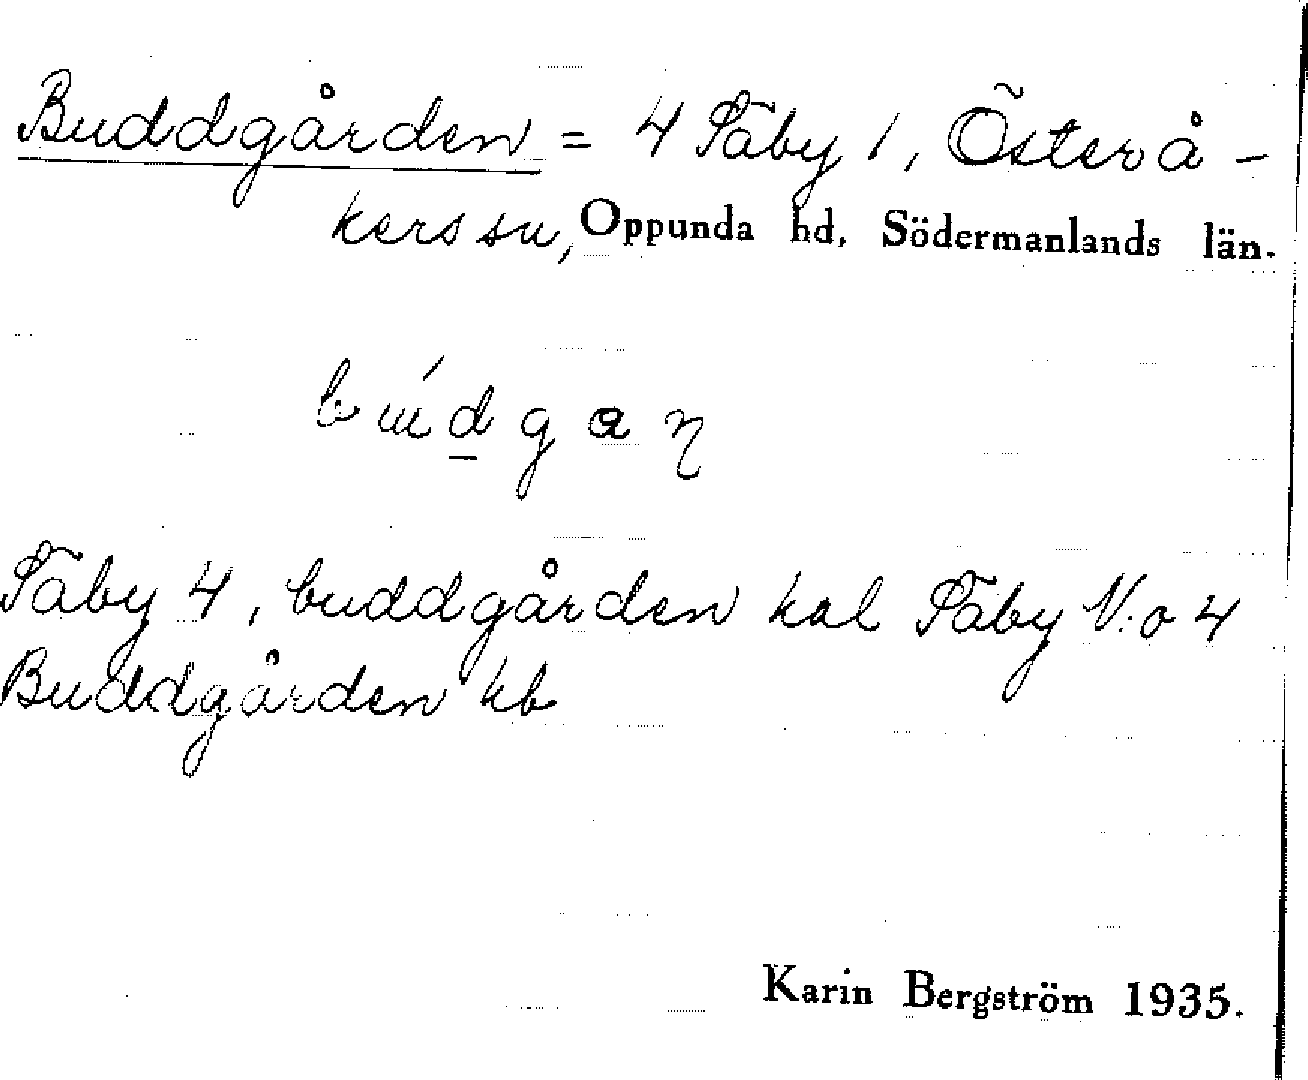 Buddgården = 4 Täby 1, Österå-
kers sn, Oppunda hd, Södermanlands län.
bu̍d̲gaɳ
Täby 4, buddgården kal Täby N:o 4
Buddgården kb
Karin Bergström 1935.